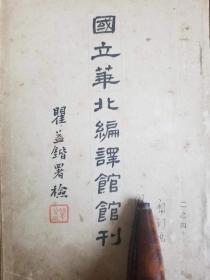 國立華北編譯館館刊
瞿益鍇署檢
二之四